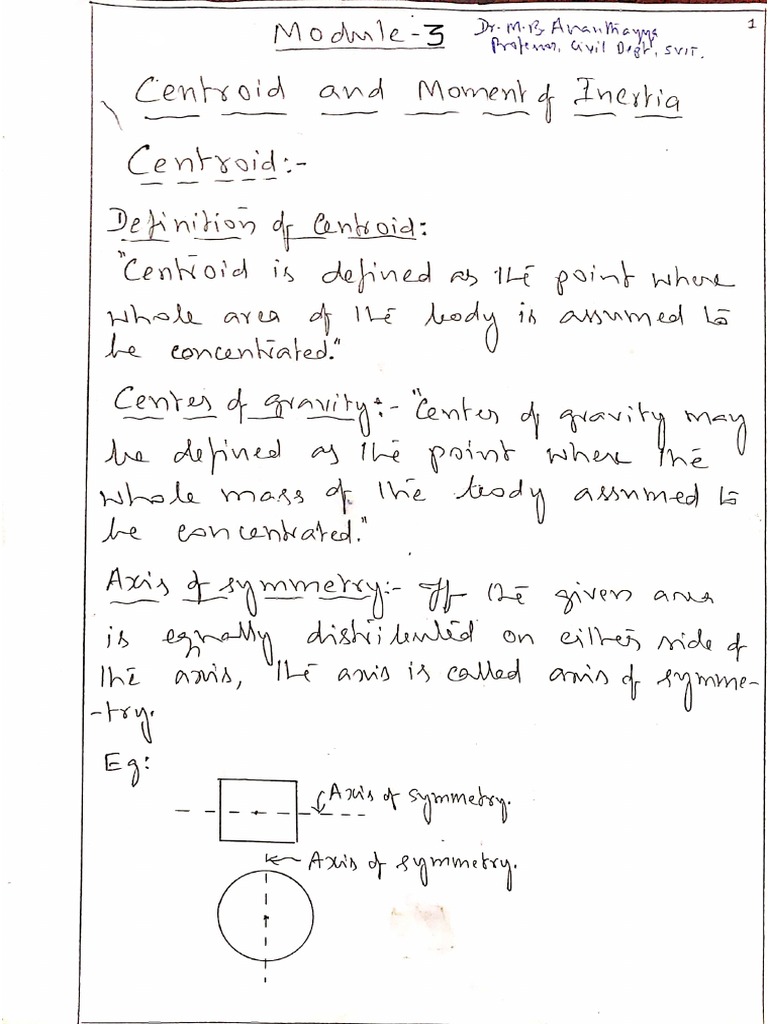 Module-3
Dr. M.B. Ananthayya
1
Professor, Civil Dept, SVIT.
Centroid and Moment of Inertia
Centroid:-
Definition of Centroid:
"Centroid is defined as the point where
whole area of the body is assumed to
be concentrated."
Center of gravity:- "Center of gravity may
be defined as the point where the
whole mass of the body assumed to
be concentrated."
Axis of symmetry:- If the given area
is equally distributed on either side of
the axis, the axis is called axis of symme-
-try.
Eg:
Axis of symmetry.
Axis of symmetry.